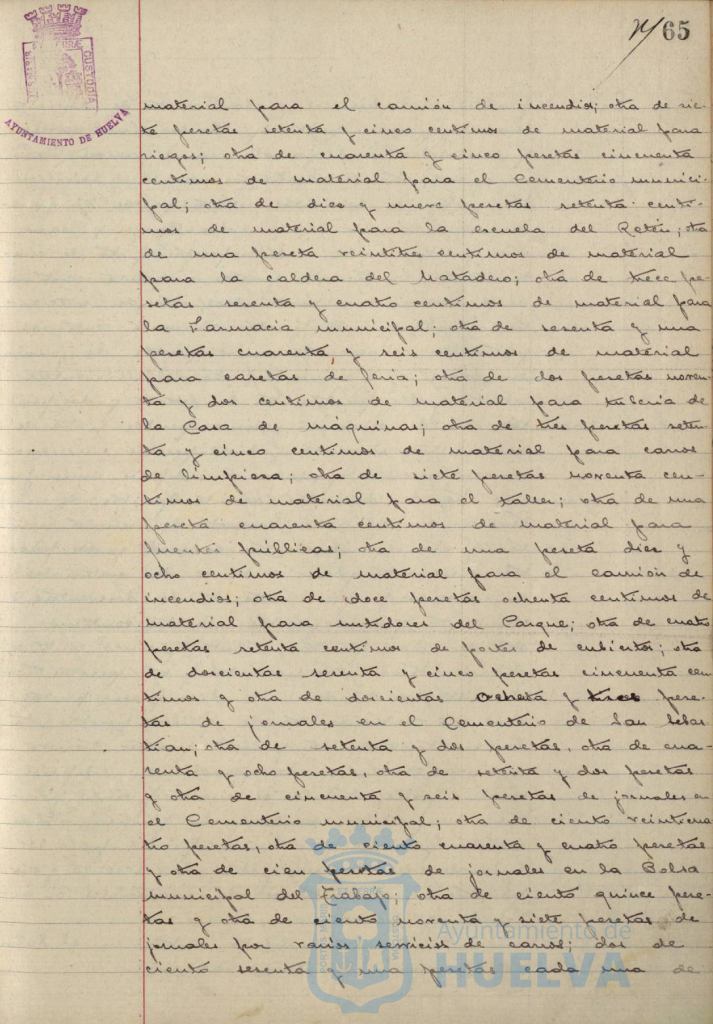 65
CUSTODIA
AYUNTAMIENTO DE HUELVA
material para el camión de incendios; otra de sie-
te pesetas setenta y cinco centimos de material para
riegos; otra de cuarenta y cinco pesetas cincuenta
centimos de material para el Cementerio munici-
pal; otra de diez y nueve pesetas setenta centi-
mos de material para la escuela del Retén; otra
de una peseta veintitres centimos de material
para la caldera del Matadero; otra de trece pe-
setas sesenta y cuatro centimos de material para
la Farmacia municipal; otra de sesenta y una
pesetas cuarenta y seis centimos de material
para casetas de feria; otra de dos pesetas noven-
ta y dos centimos de material para tuberia de
la Casa de máquinas; otra de tres pesetas seten-
ta y cinco centimos de material para carros
de limpieza; otra de siete pesetas noventa cen-
timos de material para el taller; otra de una
peseta cuarenta centimos de material para
fuentes públicas; otra de una peseta diez y
ocho centimos de material para el camión de
incendios; otra de doce pesetas ochenta centimos de
material para surtidores del Parque; otra de cuatro
pesetas setenta centimos de portes de cubiertos; otra
de doscientas sesenta y cinco pesetas cincuenta cen
timos y otra de doscientas ochenta y tres pese-
tas de jornales en el Cementerio de San Sebas
tian; otra de setenta y dos pesetas, otra de cua-
renta y ocho pesetas, otra de setenta y dos pesetas
y otra de cincuenta y seis pesetas de jornales en
el Cementerio municipal; otra de ciento veinticua
tro pesetas, otra de ciento cuarenta y cuatro pesetas
y otra de cien pesetas de jornales en la Bolsa
municipal del Trabajo; otra de ciento quince pese-
tas y otra de ciento noventa y siete pesetas de
jornales por varios servicios de carros; dos de
ciento sesenta y una pesetas cada una de
Ayuntamiento de
HUELVA